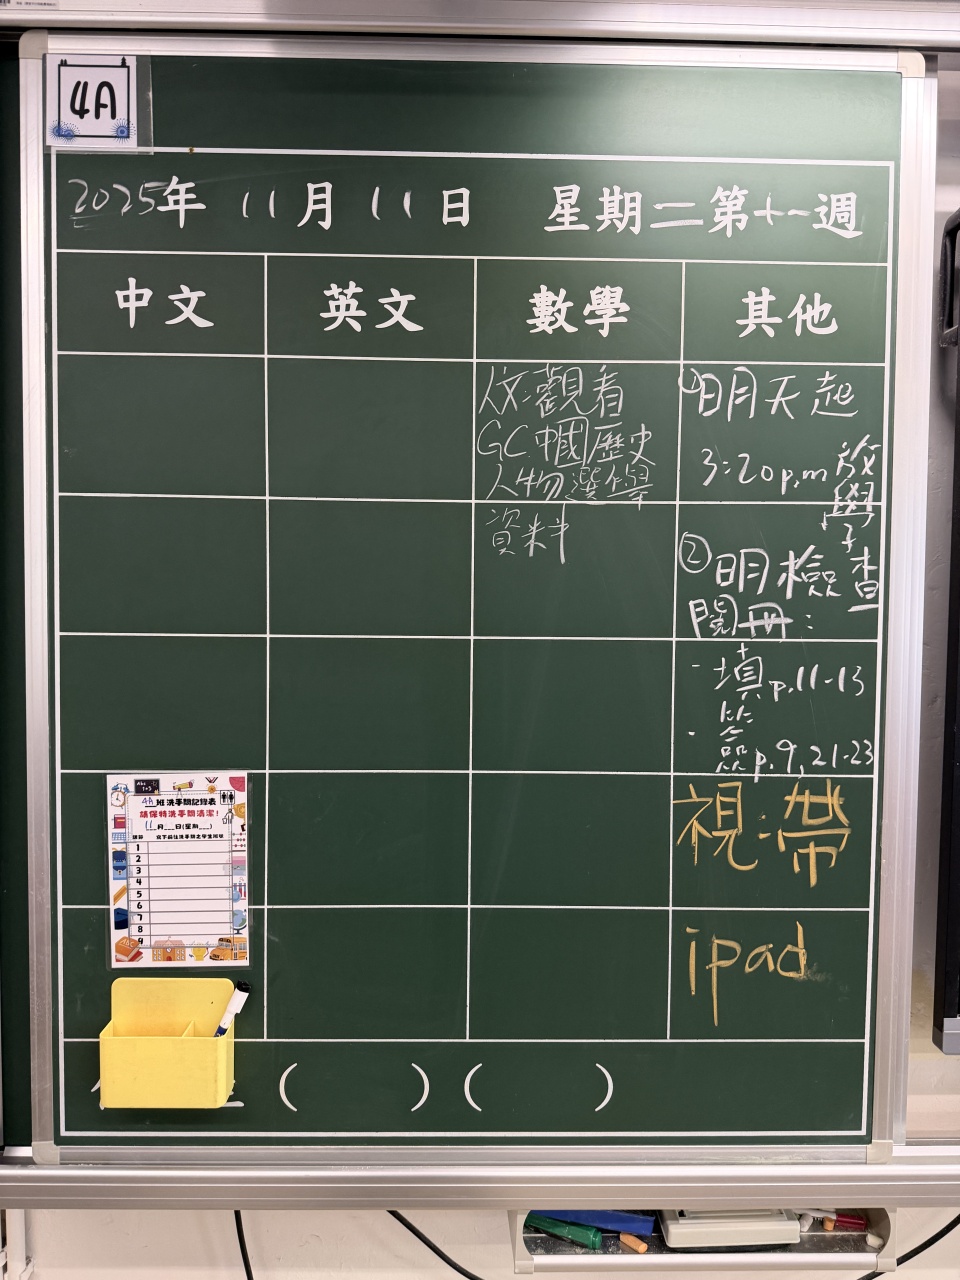 4A
2025年 11月 11日 星期二第十一週
中文 英文 數學 其他
人文:觀看
GC中國歷史
人物選舉
資料
①明天起
3:20p.m放學
②明檢查
閱冊:
-填p.11-13
·簽p.9,21-23
視:帶
ipad
4A班洗手間記錄表
請保持洗手間清潔!
11月__日(星期__)
1
2
3
4
5
6
7
8
9
( ) ( )